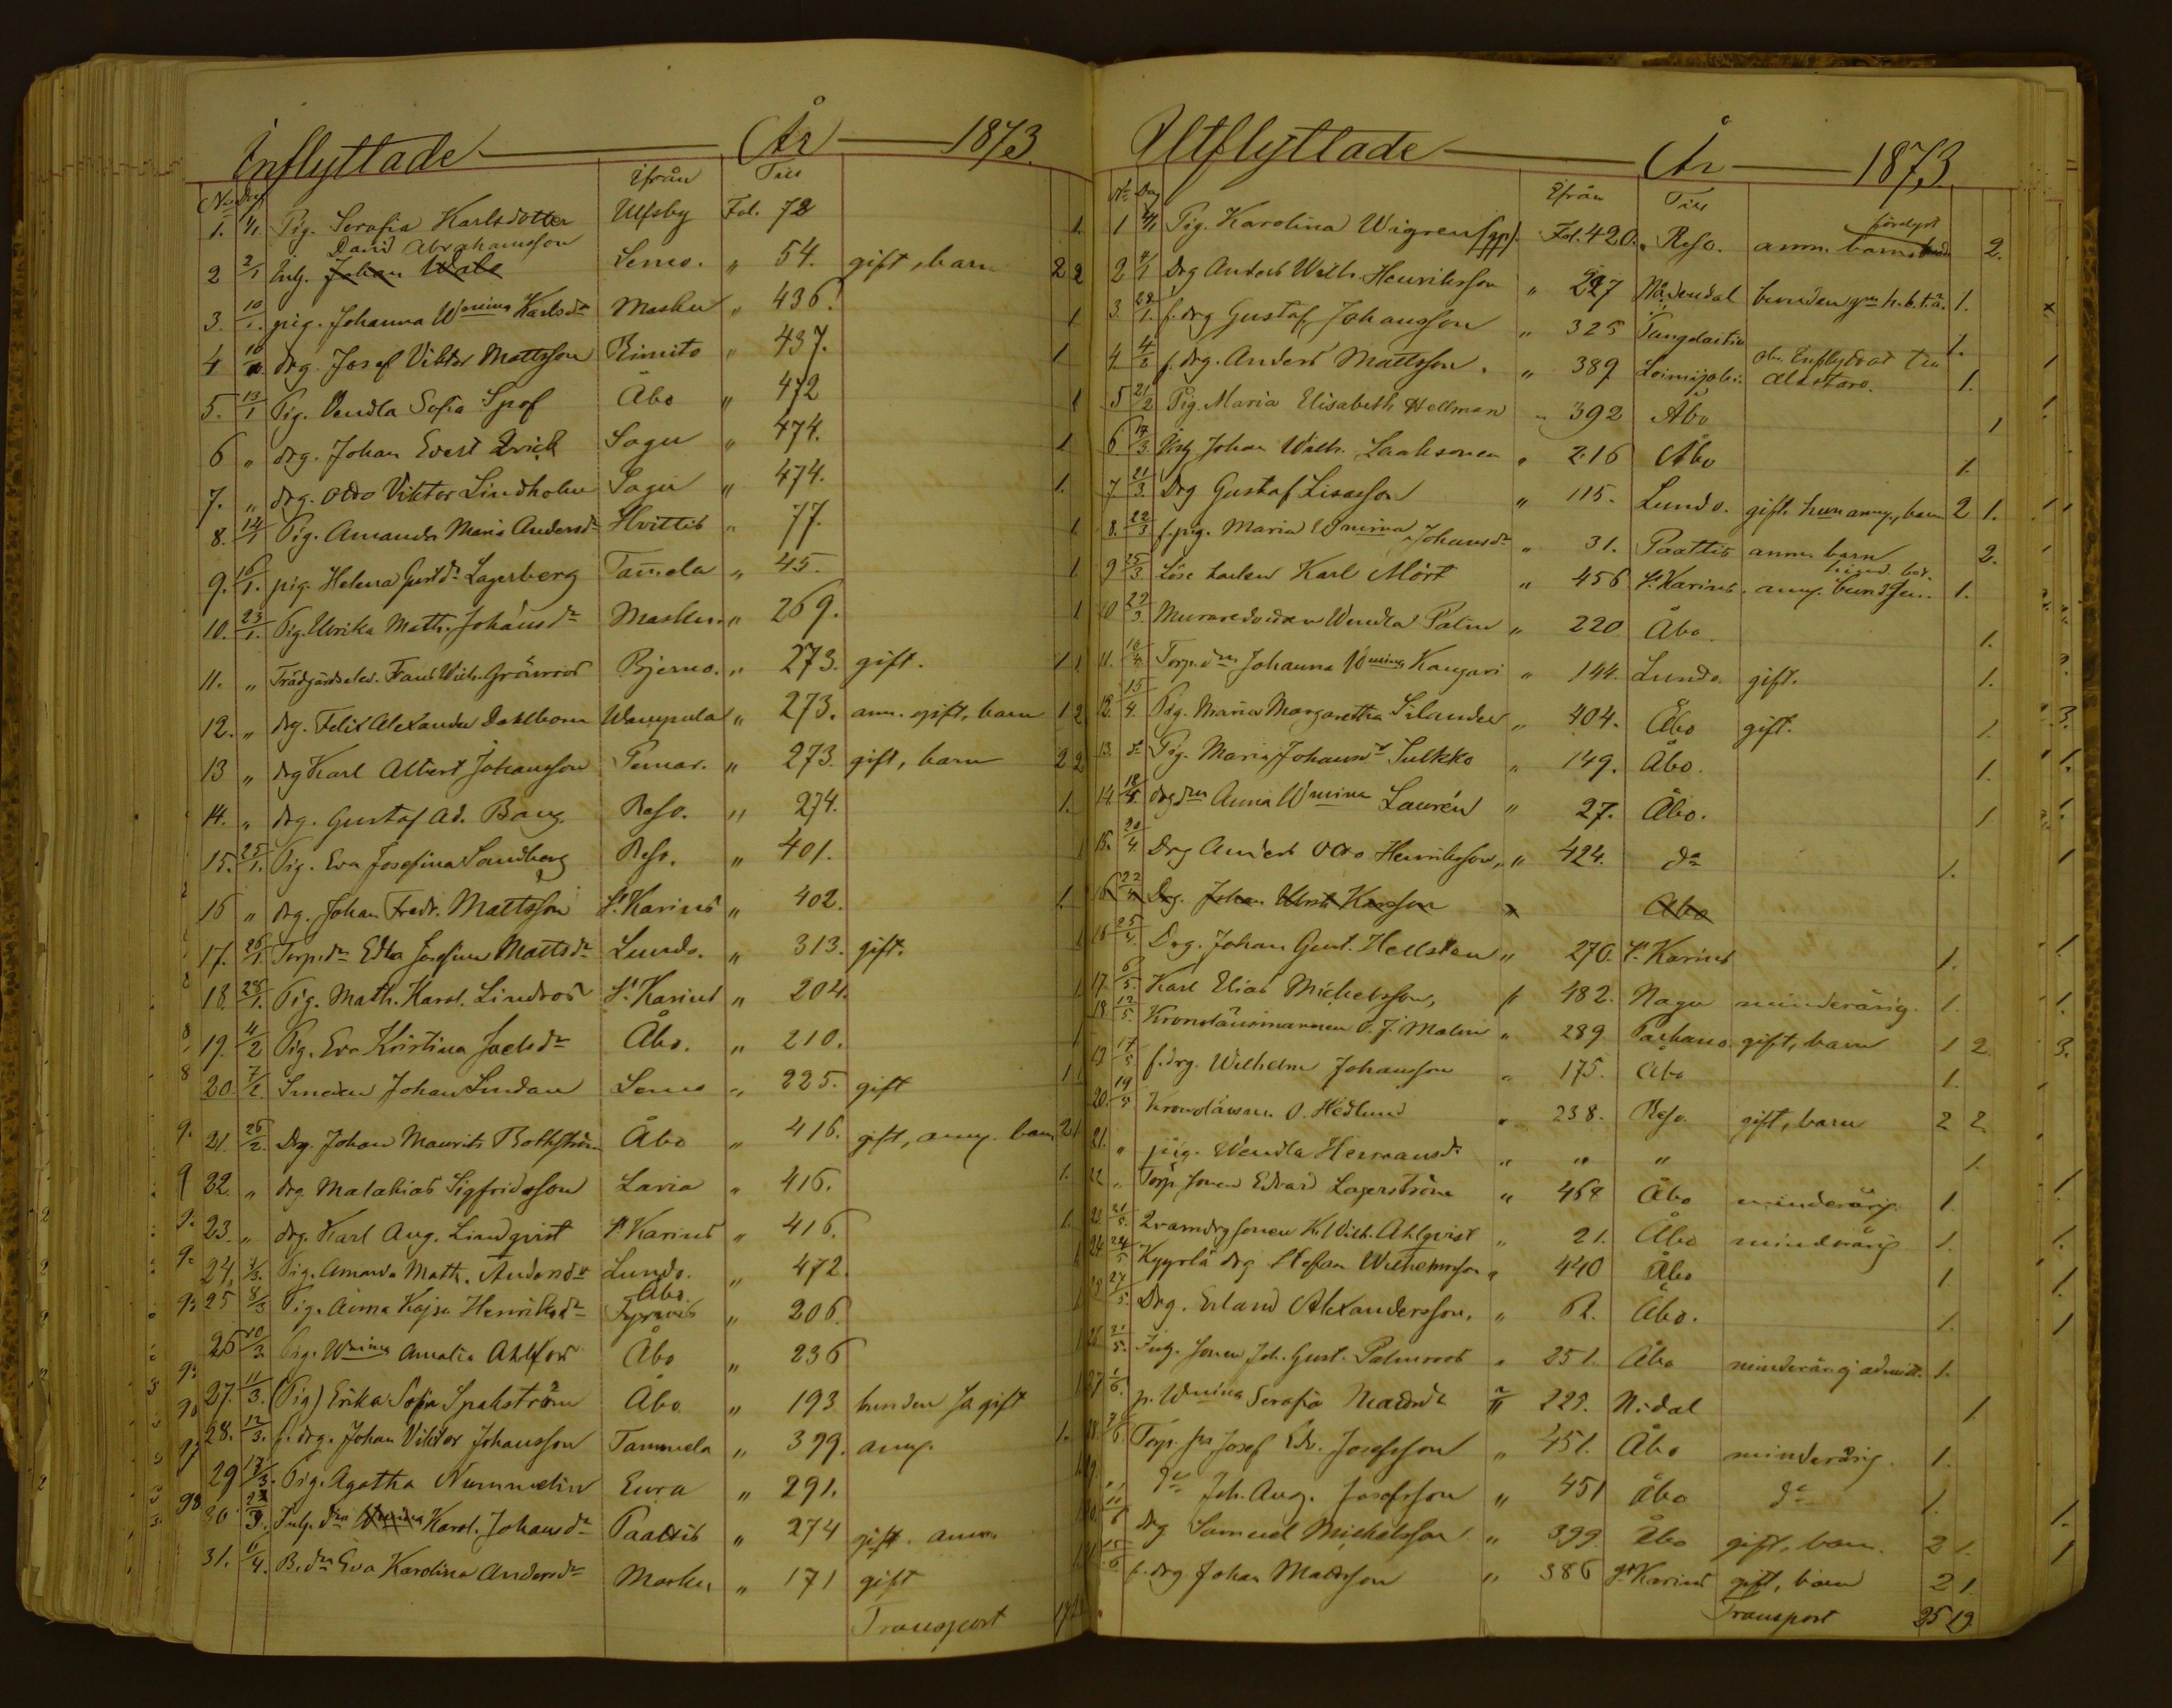 Inflyttade År 1873.
No Dag Ifrån Till
1. 1/1 Pig. Serafia Karlsdotter Ulfsby Fol. 72 1.
David Abrahamsson
2 2/1 Inh. Johan Wals Lemo. " 54. gift, barn 2 2
3. 10/1. pig. Johanna Wmina Karlsdr Masku " 436. 1
4 10/1. drg. Josef Viktor Mattsson Rimito " 437. 1
5. 13/1 Pig. Vendla Sofia Spof Åbo " 472 1
6 " drg. Johan Evert Qvick Sagu " 474. 1
7. " drg. Otto Viktor Lindholm Sagu " 474. 1.
8. 14/1 Pig. Amanda Maria Andersdr Hvittis " 77. 1
9. 16/1. pig. Helena Gustdr Lagerberg Tammela " 45. 1
10. 23/1. Pig. Ulrika Math. Johansdr Masku. " 269. 1
11. " Trädgårdselev. Frans Wilh. Grönroos Bjerno. " 273. gift. 1 1
12. " drg. Felix Alexander Dahlbom Wampula " 273. ann. gift, barn 1 2
13 " drg Karl Albert Johansson Pemar. " 273. gift, barn 2 2
14. " drg. Gustaf Ad. Bang Reso. " 274. 1.
15. 25/1. Pig. Eva Josefina Sandberg Reso. " 401. 1
16 " drg. Johan Fredr. Mattsson St Karins " 402. 1.
17. 26/1 Torp.dr Edla Josefina Mattsdr Lundo. " 313. gift. 1
18. 28/1. Pig. Math. Karol. Lindros St Karins " 204. 1
19. 4/2 Pig. Eva Kristina Joelsdr Åbo. " 210. 1
20. 7/2. Smeden Johan Lindan Lemo " 225. gift 1 1
21. 26/2. Drg. Johan Maurits Rothström Åbo " 416. gift, anny. barn 2 1
22. " drg. Malakias Sigfridsson Lavia " 416. 1.
23. " drg. Karl Aug. Lindqvist St Karins " 416. 1.
24. 1/3. Pig. Amanda Math. Andersdr Lundo. " 472. 1
Åbo.
25 8/3 Pig. Anna Kajsa Henriksdr " 206. 1
26 10/3. Pig. Wmina Amalia Ahlfors Åbo " 236 1
27. 11/3. (Pig) Erika Sofia Spakström Åbo " 193 1
28. 12/3. f. drg. Johan Viktor Johansson Tammela " 399. anny. 1.
29 17/3. Pig. Agatha Nummelin Eura " 291. 1
30. Inh. dra Karol. Johansdr Paattis " 274 gift. ann. 1
31. 11/4. B.dr Eva Karolina Andersdr Masku " 171 gift 1
Transport
Utflyttade År 1873.
No Dag Ifrån Till
1 Pig. Karolina Wigren Fol. 420. Reso. 2.
2 Drg Anders Wilh. Henriksson " 227 Nådendal 1.
3 29/1. f. drg Gustaf Johansson " 325 1.
4. 4/2 f. drg. Anders Mattsson. " 389 Loimijoki. Alastaro. 1.
5 21/2 Pig. Maria Elisabeth Hellman " 392 Åbo 1
6 14/3. Johan Wilh. Laaksonen " 216 Åbo 1.
7 21/3. Drg Gustaf Lisasson " 115. Lundo. gift. hun anny., barn 2 1.
8. 22/3 f. pig. Maria Wmina Johansdr " 31. Paattis anm. barn 2.
9 25/3. Karl Mört " 456 St Karins. 1.
10 29/3. Wendla Palin " 220 Åbo. 1.
11. 10/4. Torp.drn Johanna Wmina Kangari " 144. Lundo. gift. 1.
12. 15/4. Pig. Maria Margaretha Silander " 404. Åbo gift. 1.
13. dr Pig. Maria Johansdr Sulkko " 149. Åbo. 1.
14. 18/4. drg drn Anna Wmina Laurén " 27. Åbo. 1
15. 20/4 Drg Anders Otto Henriksson, " 424. do 1.
16 22/4 Drg. Johan " Åbo
16 25/4. Drg. Johan Gust. Hellsten " 270. St Karins 1.
17. 6/5. Karl Elias Michelsson, " 482. Nagu minderårig. 1.
18. 12/5. Kronolänsmannen O. J. Malin " 289 Parkano gift, barn 1 2.
19 17/5 f. drg. Wilhelm Johansson " 175. Åbo 1.
20. 19/5 Kronolänsm. O. Hedlund " 238. Reso. gift, barn 2 2.
21. " pig. Wendla Hermansdr " " " 1.
22 " Torp. sonen Edvard Lagerström " 468 Åbo minderårig. 1.
23. 21/5. Qvarndrg sonen K. Wilh. Ahlqvist " 21. Åbo minderårig 1.
24 24/5 Kyyrlä drg Stefan Wilhelmsson " 440 Åbo 1
25 27/5. Drg. Erland Alexandersson. " 62. Åbo. 1.
26. 31/5. Inh. sonen Joh. Gust. Palmroos " 251. Åbo minderårig admitt. 1.
27 1/6. p. Wmina Serafia " 229. N.dal 1
28. Torp. sn Josef Edv. Josefsson " 451. Åbo minderårig. 1.
29 " do Joh. Aug. Josefsson " 451 Åbo do 1.
30 11/6 drg Samuel Michelsson " 399. Åbo gift, barn. 2 1.
31 15/6 f. drg Johan Mattsson " 386 St Karins gift, barn 2 1.
Transport 25 19